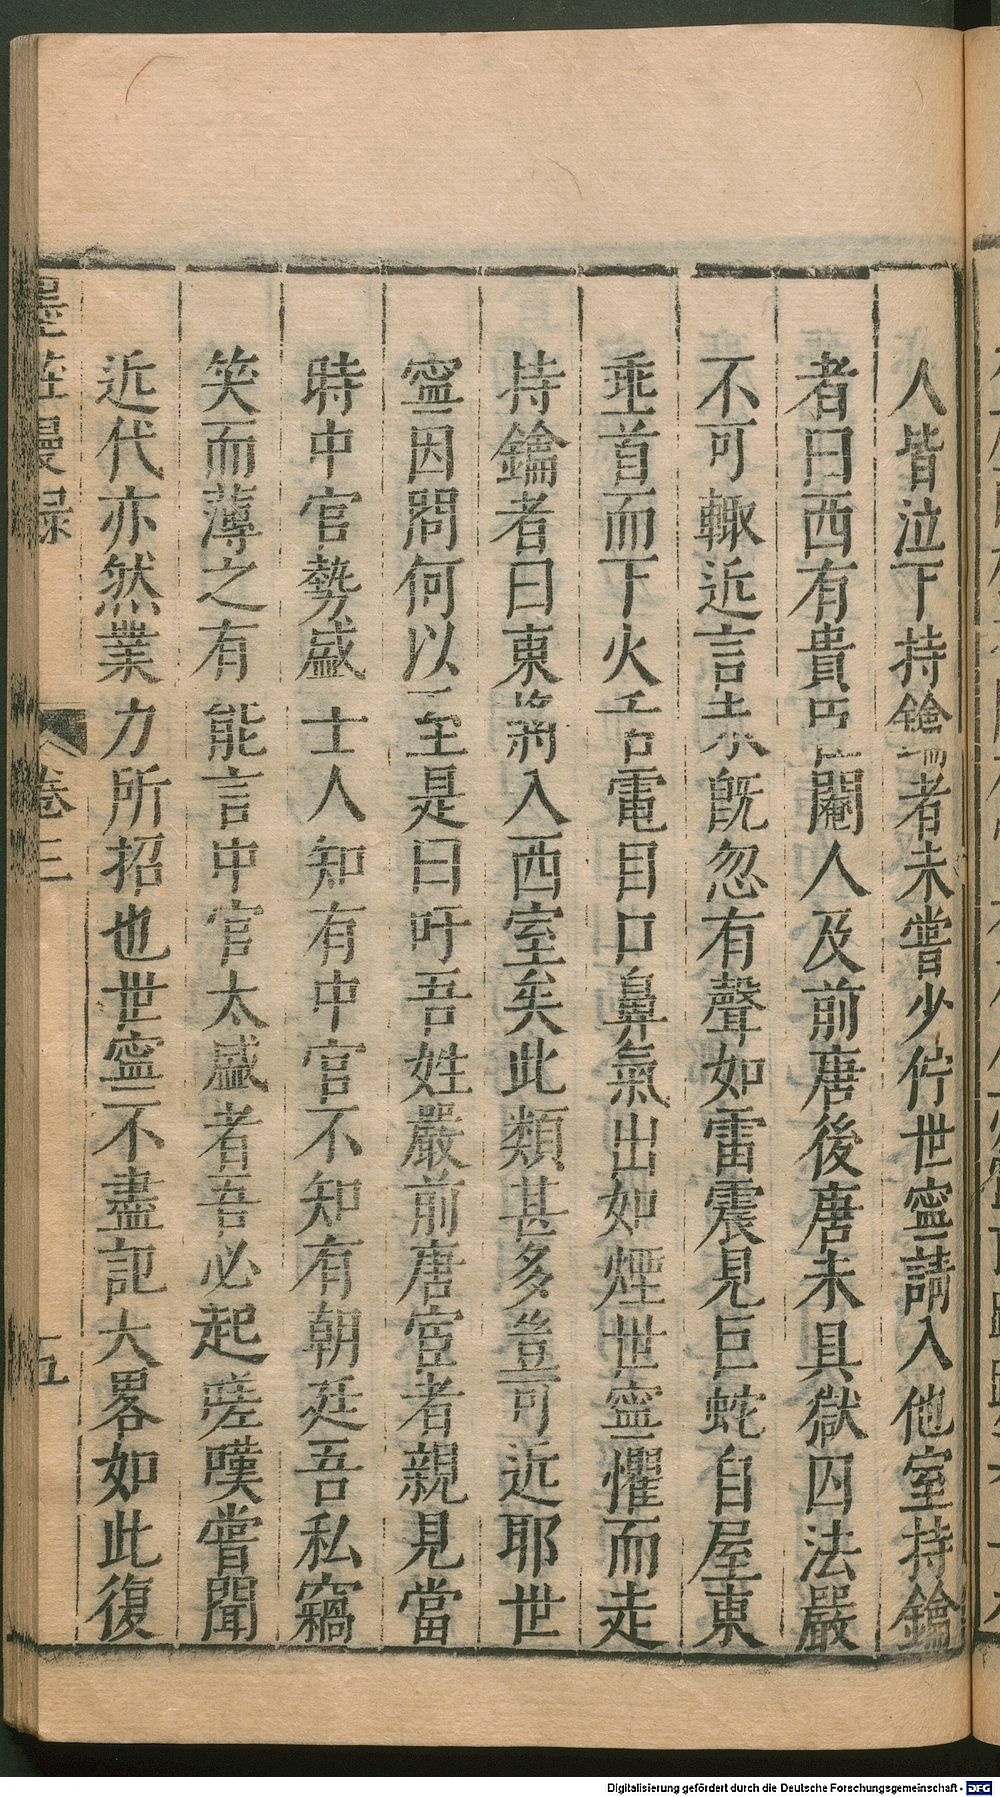 人皆泣下持鑰者未嘗少佇世寧請入他室持鑰
者曰西有貴臣閹人及前唐後唐未具獄囚法嚴
不可輙近言未既忽有聲如雷震見巨蛇自屋東
垂首而下火舌電目口鼻氣出如煙世寧懼而走
持鑰者曰東將入西室矣此類甚多豈可近耶世
寧因問何以至是曰吁吾姓嚴前唐宦者親見當
時中官勢盛士人知有中官不知有朝廷吾私竊
笑而薄之有能言中官太盛者吾必起嗟嘆嘗聞
近代亦然業力所招也世寧不盡記大畧如此復
墨莊漫録
卷三
五
Digitalisierung gefördert durch die Deutsche Forschungsgemeinschaft - DFG